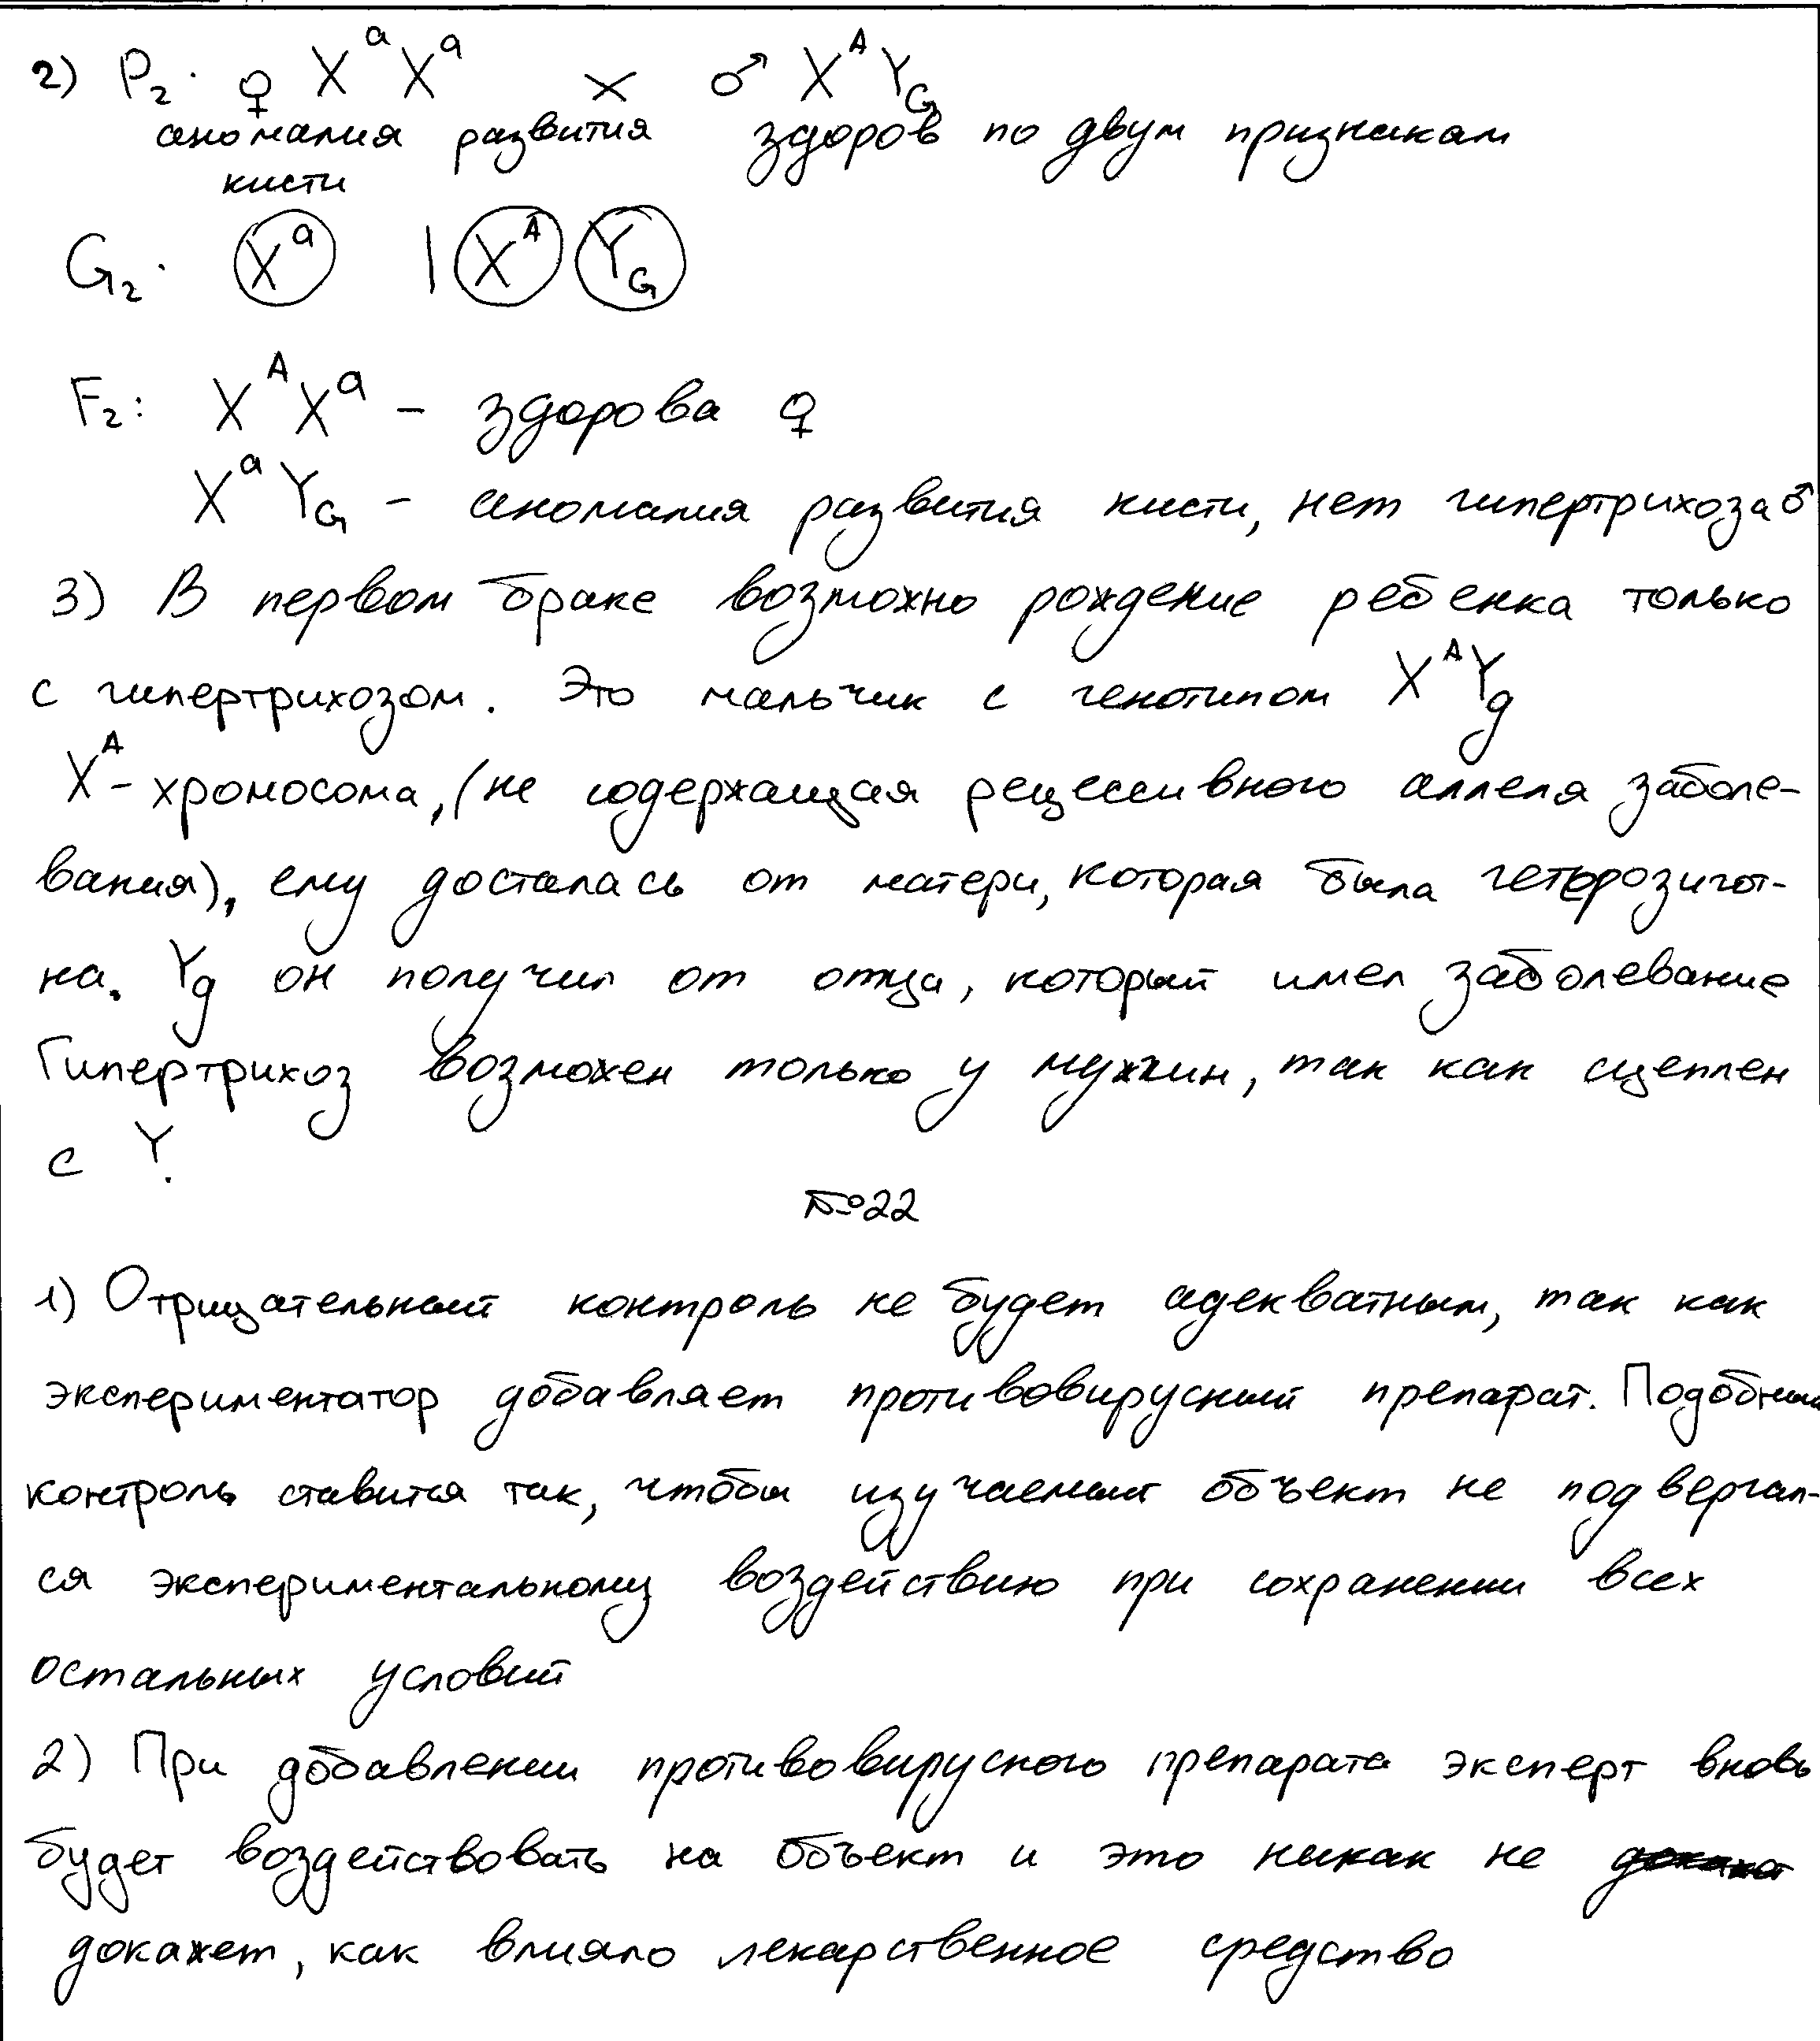 2) P₂. ♀ XᵃXᵃ × ♂ XᴬY_G
аномалия развития здоров по двум признакам
кисти
G₂. Xᵃ | Xᴬ Y_G
F₂: XᴬXᵃ – здорова ♀
XᵃY_G – аномалия развития кисти, нет гипертрихоза ♂
3) В первом браке возможно рождение ребенка только
с гипертрихозом. Это мальчик с генотипом XᴬY_g
Xᴬ – хромосома, (не содержащая рецессивного аллеля заболе-
вания), ему досталась от матери, которая была гетерозигот-
на. Y_g он получил от отца, который имел заболевание
Гипертрихоз возможен только у мужчин, так как сцеплен
с Y.
№22
1) Отрицательный контроль не будет адекватным, так как
экспериментатор добавляет противовирусный препарат. Подобный
контроль ставится так, чтобы изучаемый объект не подвергал-
ся экспериментальному воздействию при сохранении всех
остальных условий
2) При добавлении противовирусного препарата эксперт вновь
будет воздействовать на объект и это никак не
докажет, как влияло лекарственное средство